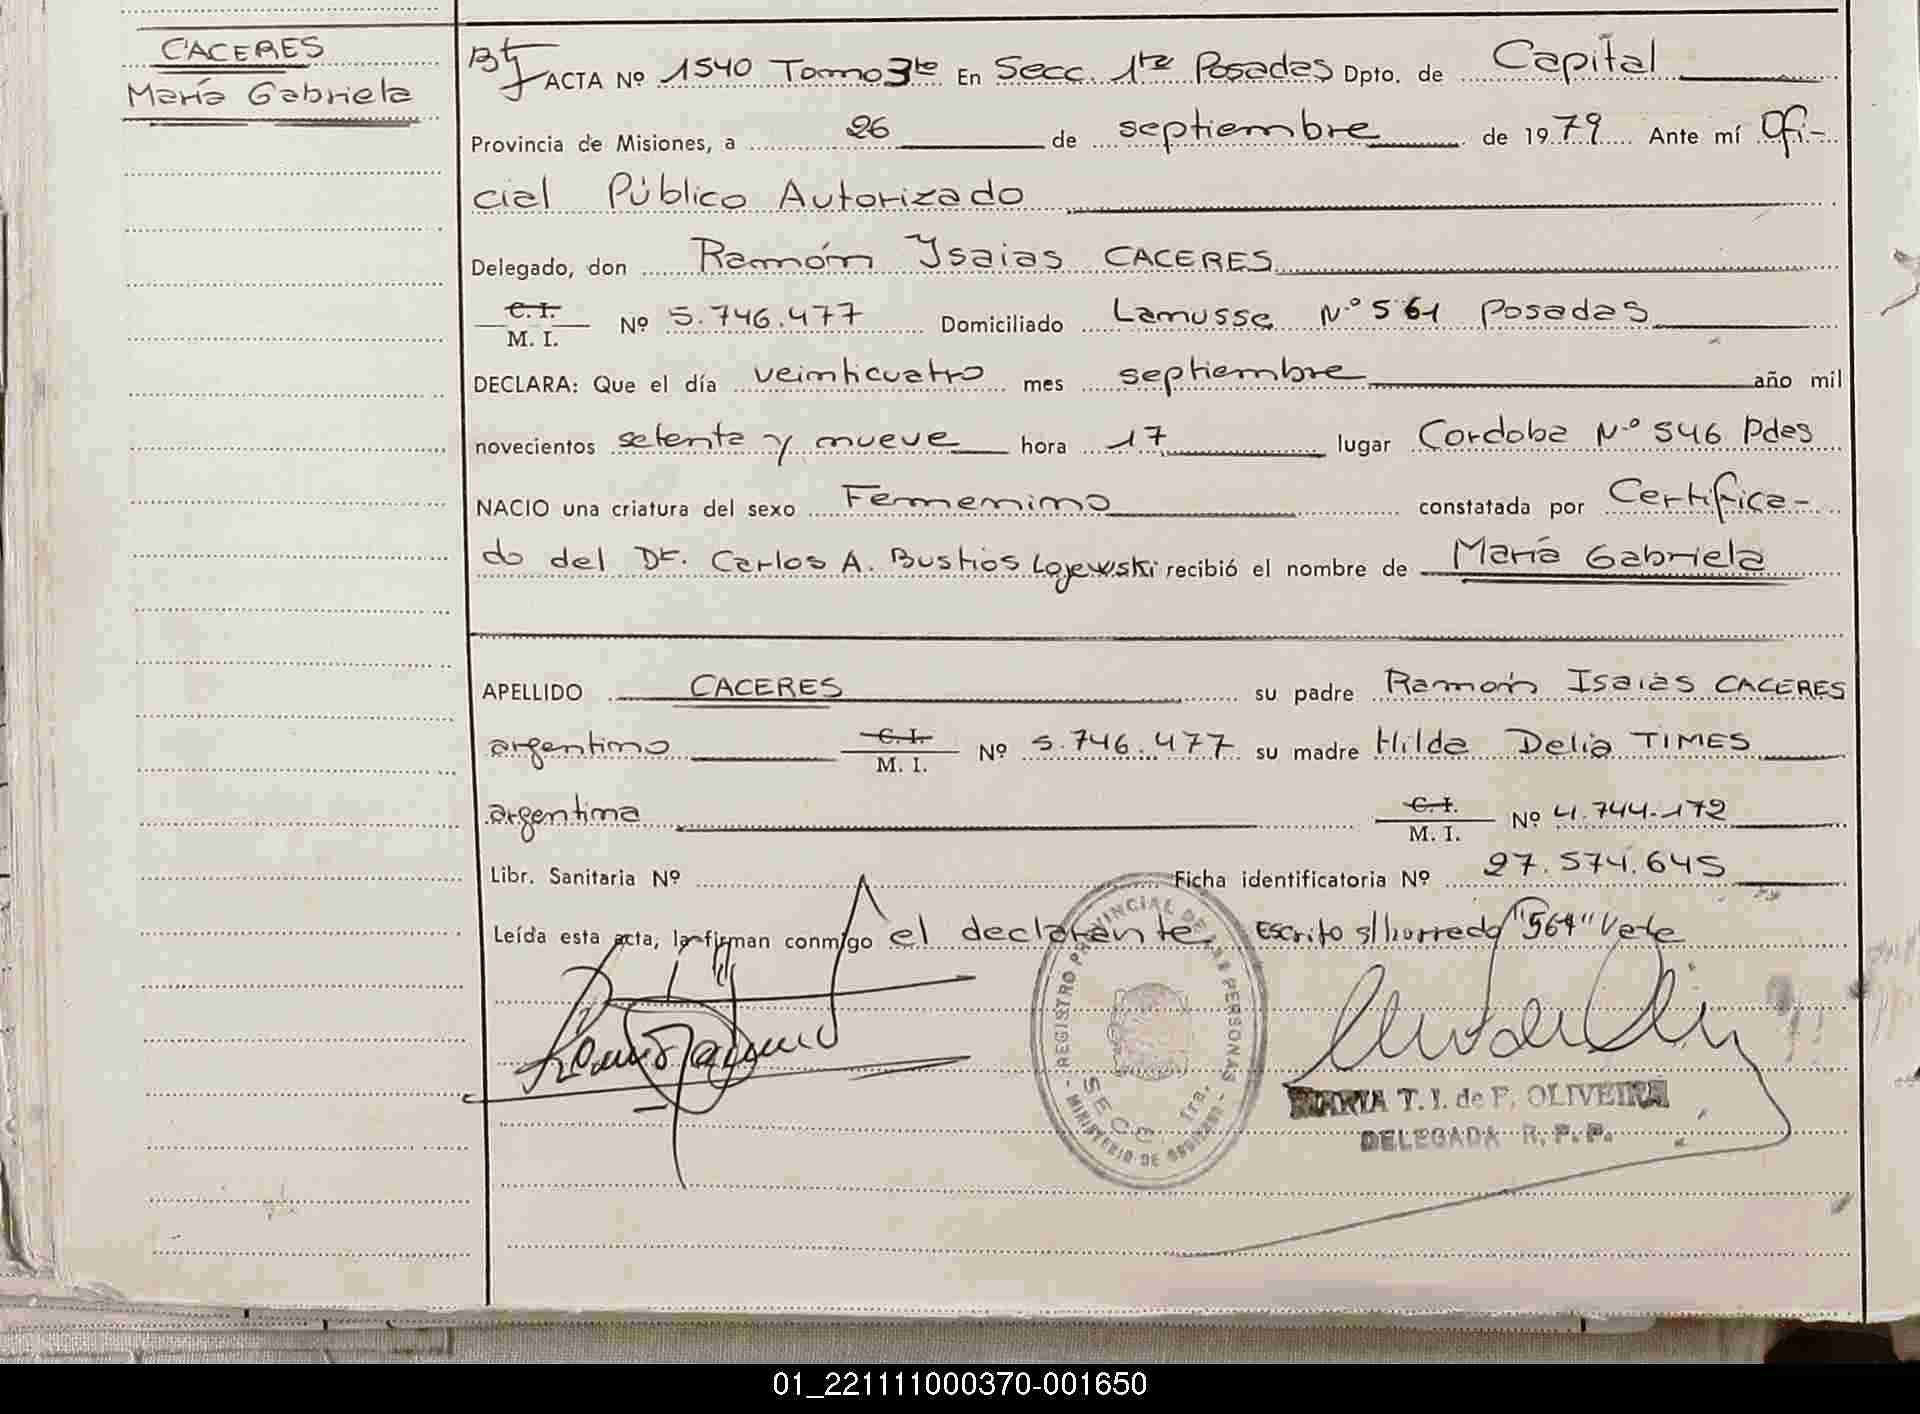 CACERES
María Gabriela
ACTA Nº 1540 Tomo 3to En Secc. 1ra Posadas Dpto. de Capital
Provincia de Misiones, a 26 de septiembre de 1979 Ante mí Ofi-
cial Público Autorizado
Delegado, don Ramón Ysaias CACERES
C. I.
M. I. Nº 5.746.477 Domiciliado Lamusse Nº 561 Posadas
DECLARA: Que el día veinticuatro mes septiembre año mil
novecientos setenta y nueve hora 17 lugar Cordoba Nº 546 Pdas
NACIO una criatura del sexo Femenino constatada por Certifica-
do del Dr. Carlos A. Bustios Lojewski recibió el nombre de María Gabriela
APELLIDO CACERES su padre Ramón Isaias CACERES
argentino C. I. M. I. Nº 5.746.477 su madre Hilda Delia TIMES
argentina C. I. M. I. Nº 4.744.172
Libr. Sanitaria Nº Ficha identificatoria Nº 27.574.645
Leída esta acta, la firman conmigo el declarante. Escrito s/borrado "561" Vale
REGISTRO PROVINCIAL DE LAS PERSONAS
SECC. 1ra.
MINISTERIO DE GOBIERNO
MARIA T. I. de F. OLIVEIRA
DELEGADA R. P. P.
01_221111000370-001650